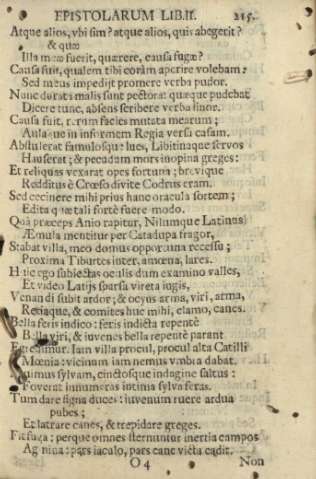 EPISTOLARUM LIB.II. 215.
Atque alios, vbi sim? atque alios, quis abegerit?
& quæ
Illa meæ fuerit, quærere, causa fugæ?
Causa fuit, qualem tibi coràm aperire volebam:
Sed metus impedijt promere verba pudor.
Nunc durat: malis sunt pectora: quæque pudebat
Dicere tunc, absens scribere verba sinor.
Causa fuit, rerum facies mutata mearum;
Aulaque in informem Regia versa casam.
Abstulerat famulosque lues, Libitinaque servos
Hauserat; & pecudum mors inopina greges:
Et reliquas vexarat opes fortuna; brevique
Redditus è Crœso divite Codrus eram.
Sed cecinere mihi prius hanc oracula sortem;
Edita quæ tali fortè fuere modo.
Quà præceps Anio rapitur, Nilumque Latinus
Æmula mentitur per Catadupa fragor,
Stabat villa, meo domus opportuna recessu;
Proxima Tiburtes inter, amœna, lares.
Hic ego subiectas oculis dum examino valles,
Et video Latijs sparsa vireta iugis,
Venandi subit ardor; & ocyus arma, viri, arma,
Retiaque, & comites huc mihi, clamo, canes.
Bella feris indico: feris indicta repentè
Bella viri, & iuvenes bella repentè parant
Egredimur. Iam villa procul, procul alta Catilli
Mœnia: vicinum iam nemus vmbra dabat.
Scindimus sylvam, cinctosque indagine saltus:
Foverat innumeras intima sylva feras.
Tum dare signa duces: iuvenum ruere ardua
pubes;
Et latrare canes, & trepidare greges.
Fit fuga: perque omnes sternuntur inertia campos
Agmina: pars iaculo, pars cane victa cadit.
O 4 Non